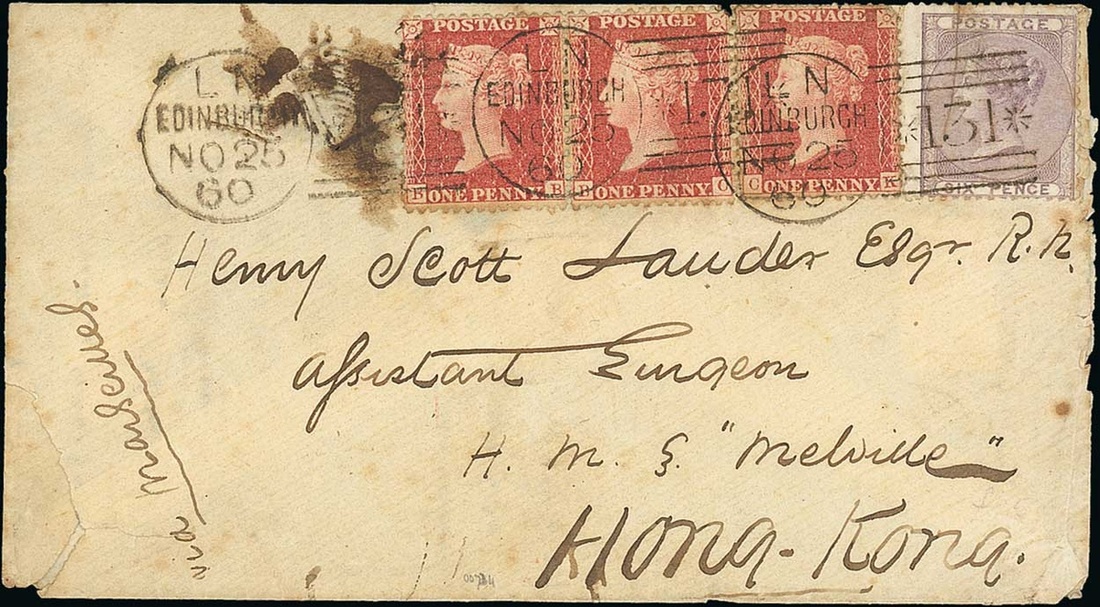 POSTAGE POSTAGE POSTAGE POSTAGE
LN
EDINBURGH
NO 25
60
LN
EDINBURGH
NO 25
60
LN
EDINBURGH
NO 25
60
131
ONE PENNY B
ONE PENNY C
C ONE PENNY K
SIX PENCE
Henry Scott Lauder Esqr. R.N.
Assistant Surgeon
H. M. S. "Melville"
Hong-Kong.
via Marseilles.